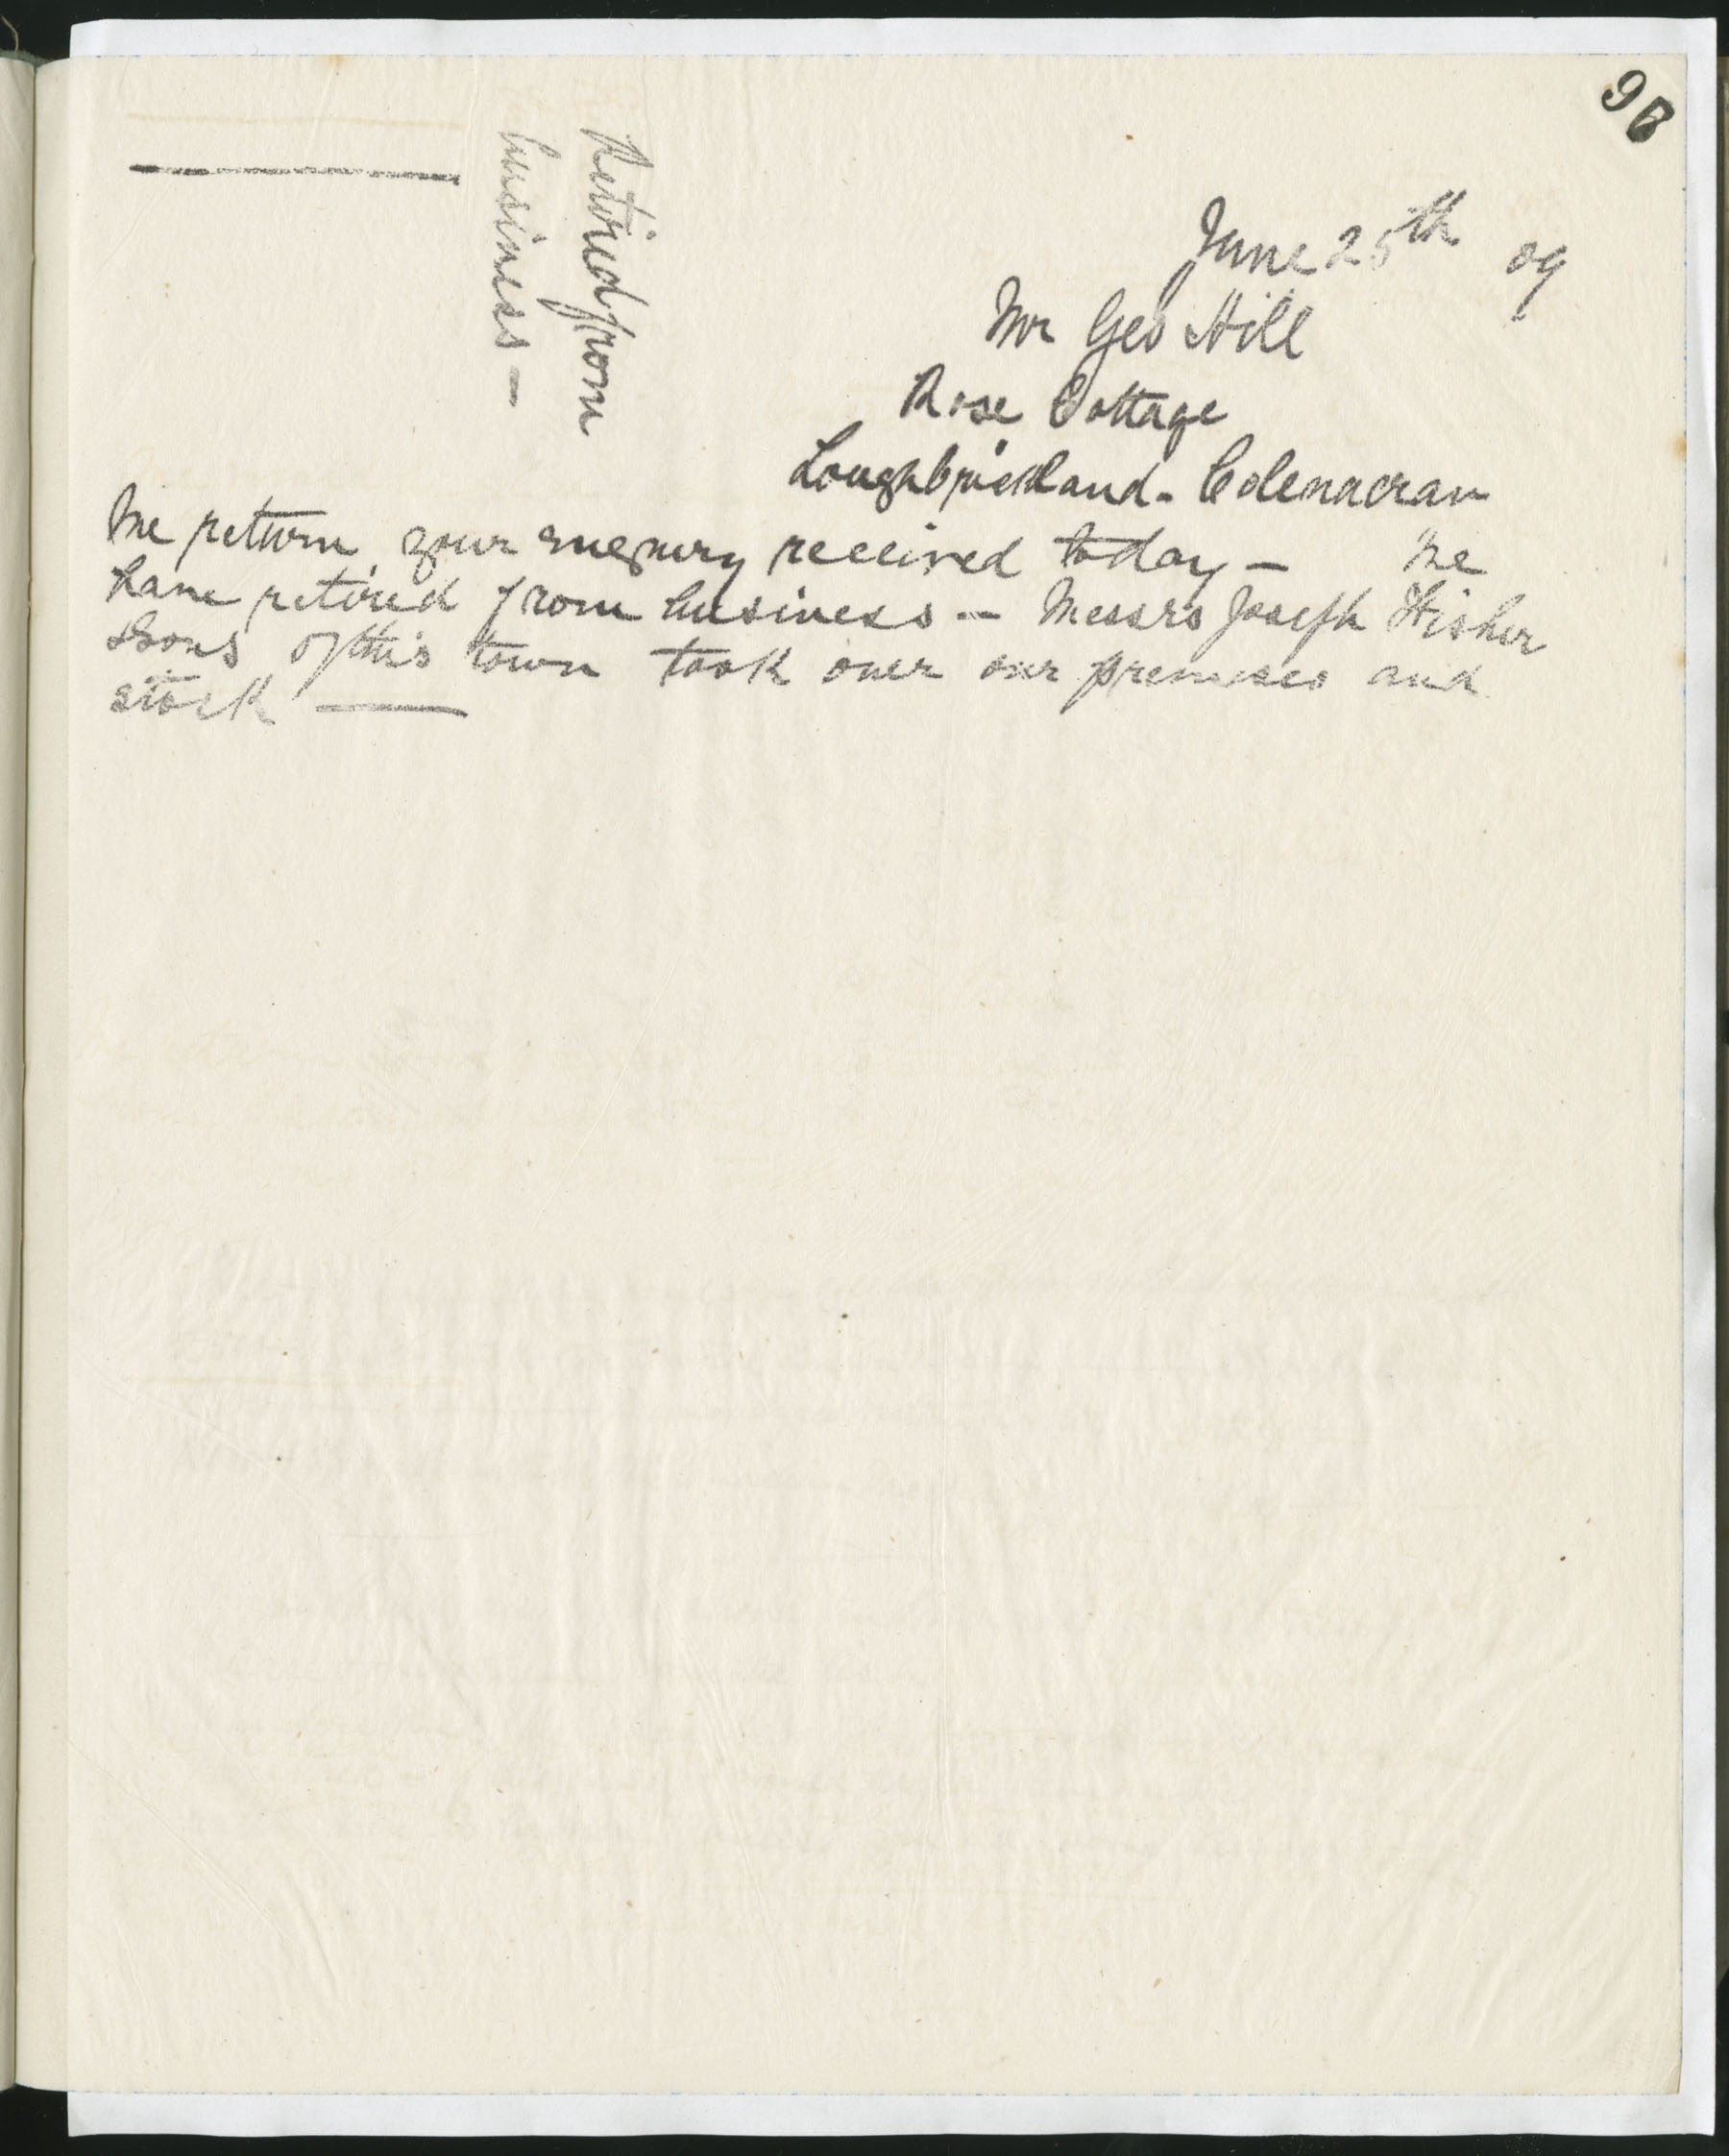 98
Retired from
business —
June 25th 09
Mr Geo Hill
Rose Cottage
Loughbrickland - Edenacran
We return your enquiry received today — We
have retired from business — Messrs Joseph Fisher
& Sons of this town took over our premises and
stock —